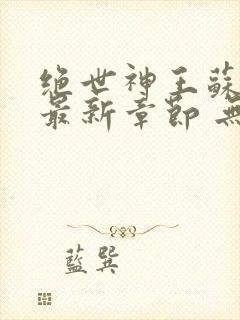 绝世神王蘇
最新章節 無
藍巽